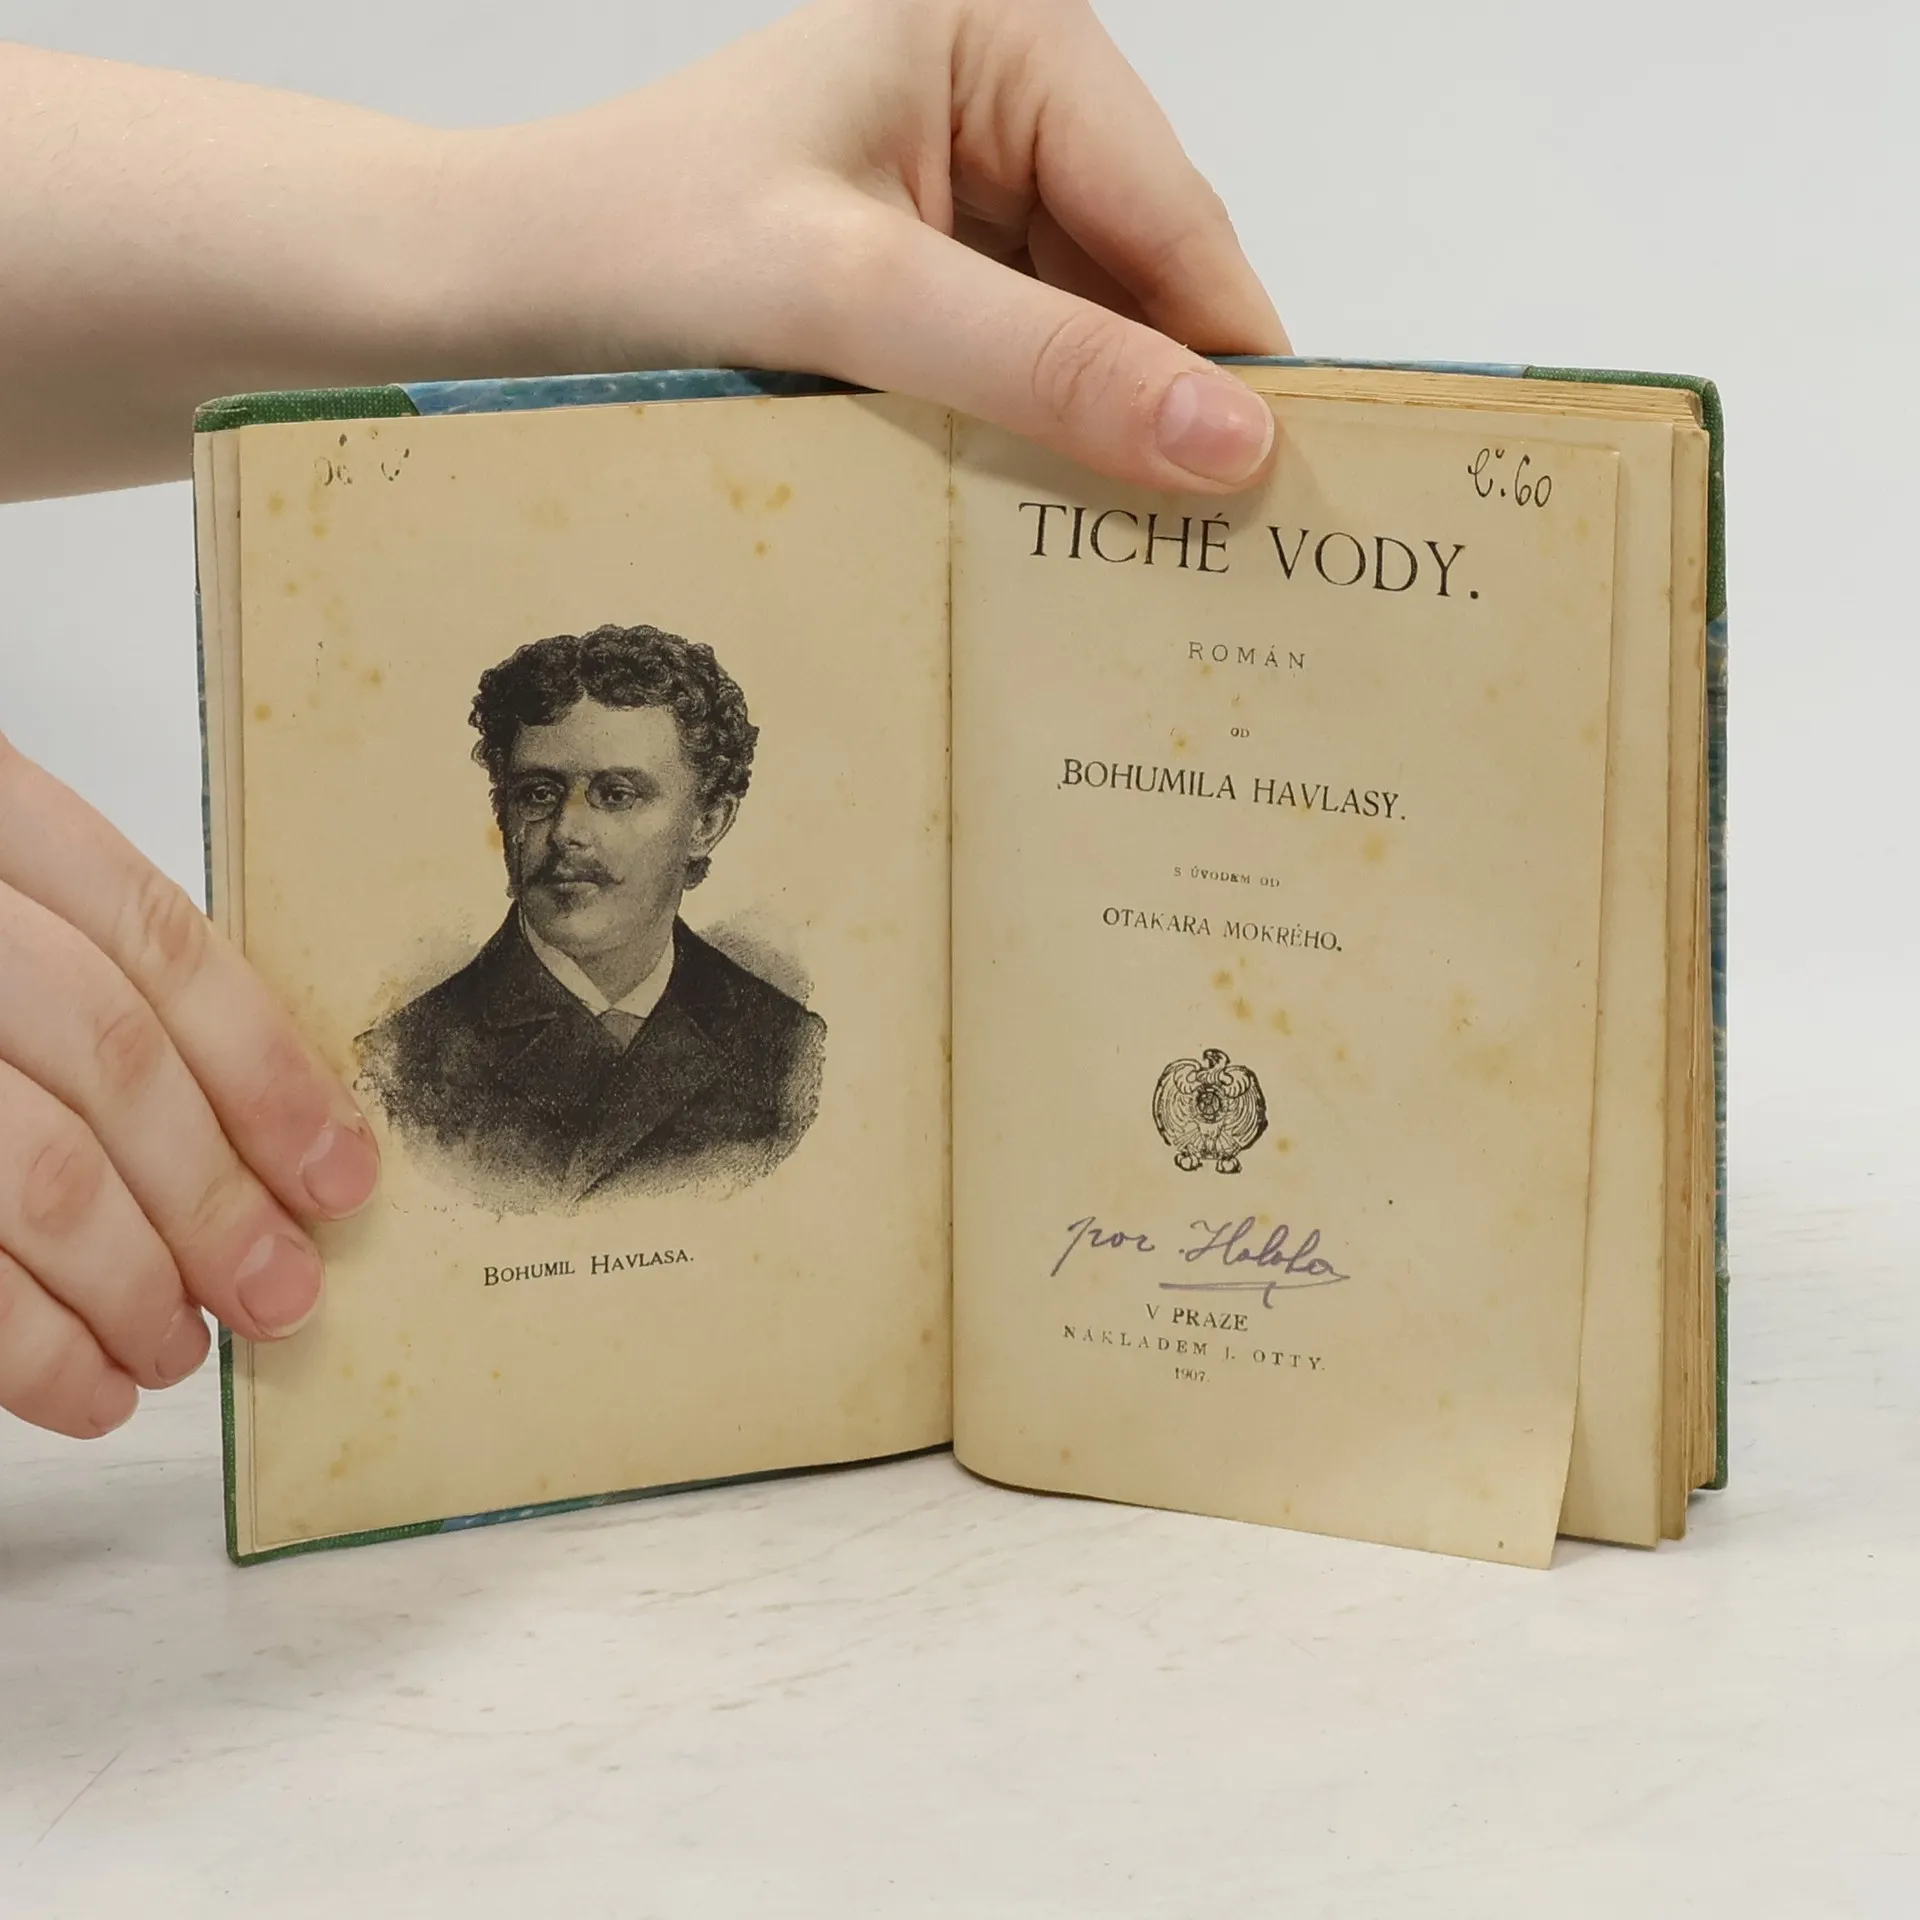 BOHUMIL HAVLASA.
č. 60
TICHÉ VODY.
ROMÁN
OD
BOHUMILA HAVLASY.
S ÚVODEM OD
OTAKARA MOKRÉHO.
por
V PRAZE
NAKLADEM J. OTTY.
1907.